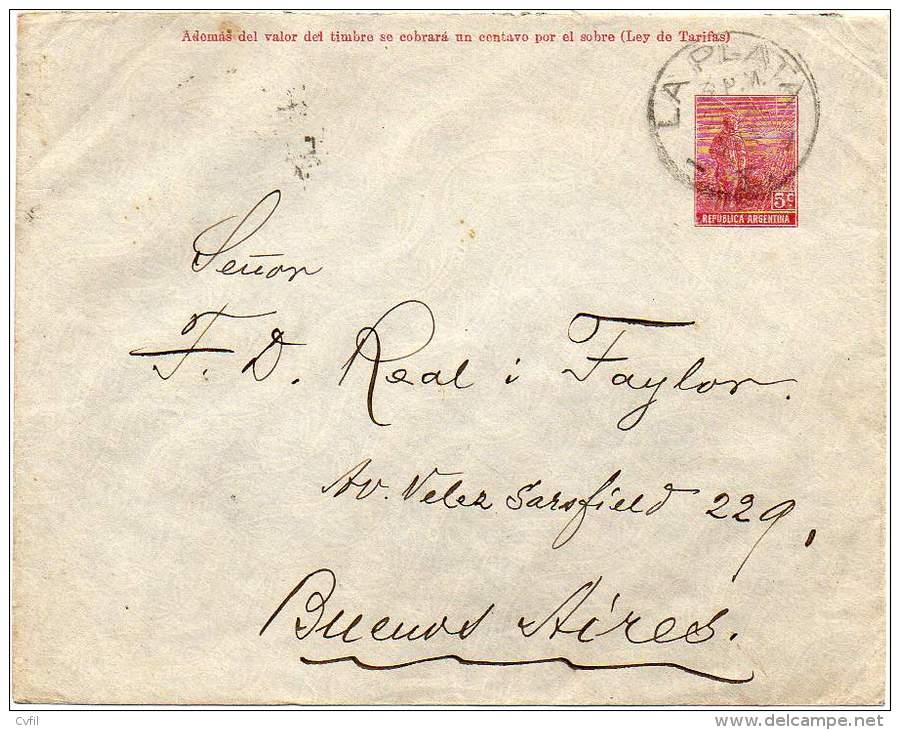 Además del valor del timbre se cobrará un centavo por el sobre (Ley de Tarifas)
LA PLATA
5c
REPÚBLICA ARGENTINA
Señor
F. D. Real i Taylor.
Av. Velez Sarsfield 229,
Buenos Aires.
Cvfil
delcampe.net